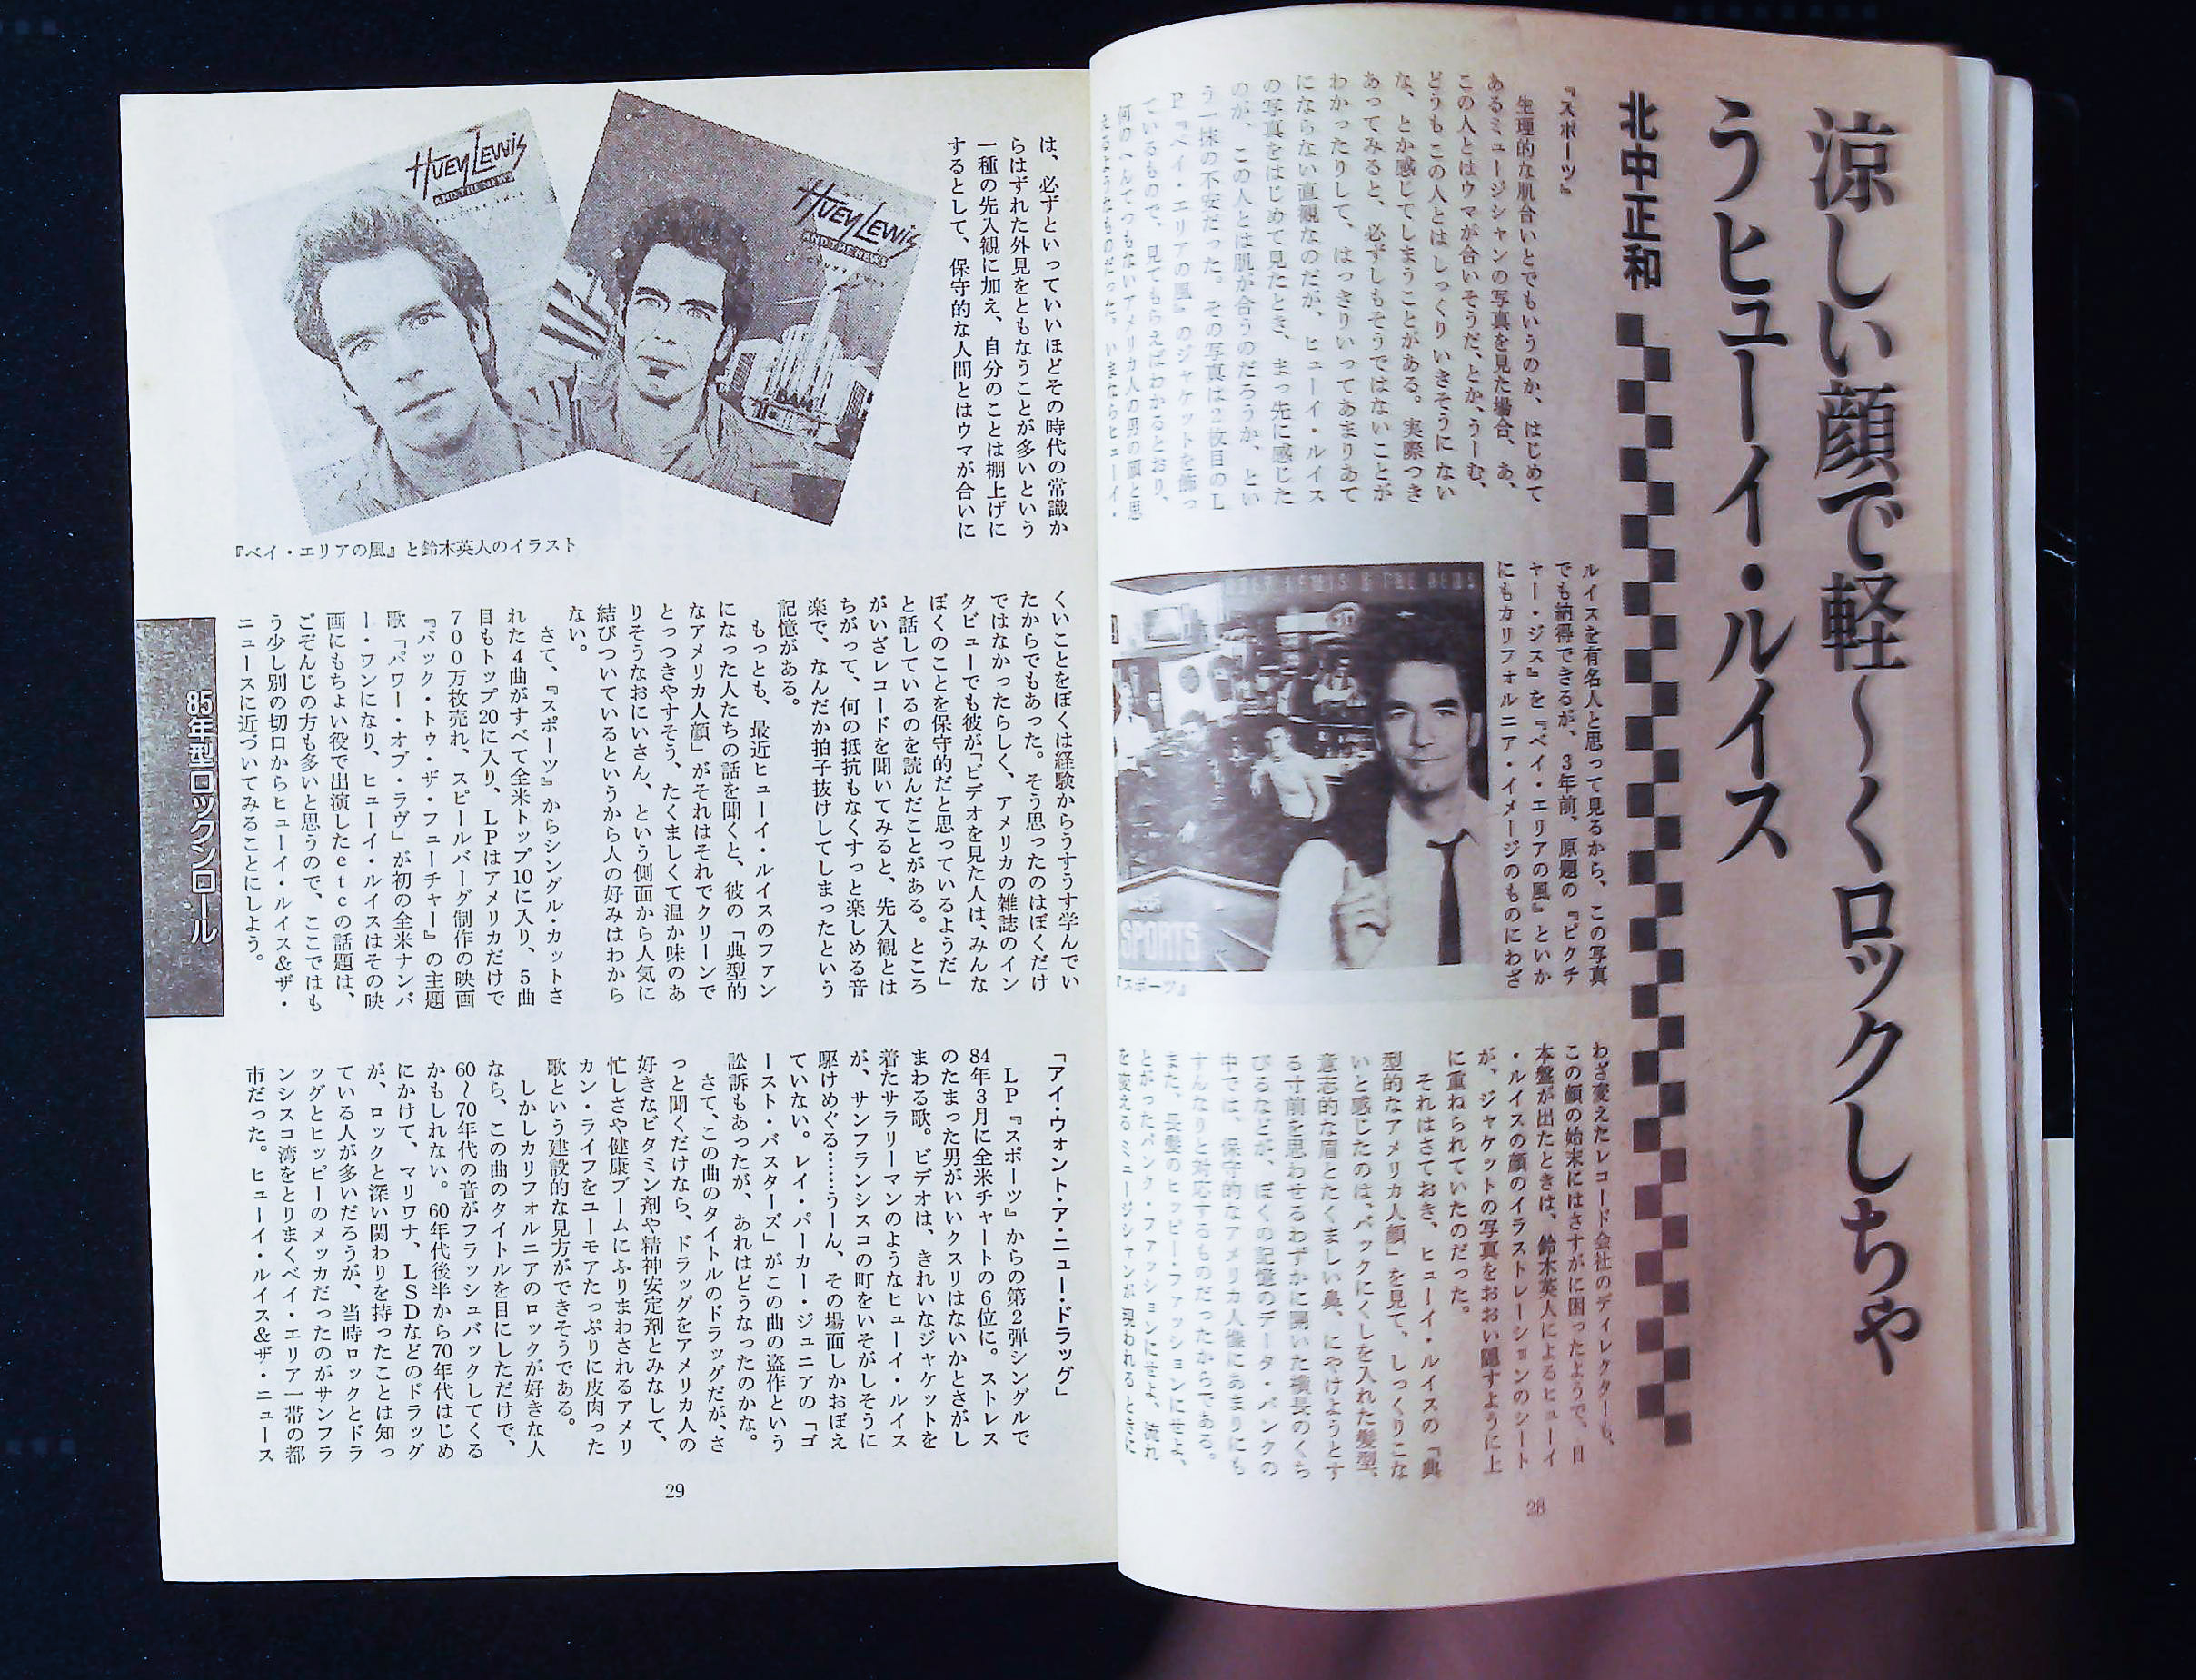 涼しい顔で軽〜くロックしちゃ
うヒューイ・ルイス
北中正和
『スポーツ』
生理的な肌合いとでもいうのか、はじめて
あるミュージシャンの写真を見た場合、あ、
この人とはウマが合いそうだ、とか、うーむ、
どうもこの人とはしっくりいきそうにない
な、とか感じてしまうことがある。実際つき
あってみると、必ずしもそうではないことが
わかったりして、はっきりいってあまりあて
にならない直観なのだが、ヒューイ・ルイス
の写真をはじめて見たとき、まっ先に感じた
のが、この人とは肌が合うのだろうか、とい
う一抹の不安だった。その写真は2枚目のL
P『ベイ・エリアの風』のジャケットを飾っ
ているもので、見てもらえばわかるとおり、
何のへんてつもないアメリカ人の男の顔と思
えるようなものだった。いまならヒューイ・
ルイスを有名人と思って見るから、この写真
でも納得できるが、3年前、原題の『ピクチ
ャー・ジス』を『ベイ・エリアの風』といか
にもカリフォルニア・イメージのものにわざ
HUEY LEWIS & THE NEWS
SPORTS
『スポーツ』
わざ変えたレコード会社のディレクターも、
この顔の始末にはさすがに困ったようで、日
本盤が出たときは、鈴木英人によるヒューイ
・ルイスの顔のイラストレーションのシート
が、ジャケットの写真をおおい隠すように上
に重ねられていたのだった。
それはさておき、ヒューイ・ルイスの「典
型的なアメリカ人顔」を見て、しっくりこな
いと感じたのは、バックにくしを入れた髪型、
意志的な眉とたくましい鼻、にやけようとす
る寸前を思わせるわずかに開いた横長のくち
びるなどが、ぼくの記憶のデータ・バンクの
中では、保守的なアメリカ人像にあまりにも
すんなりと対応するものだったからである。
また、長髪のヒッピー・ファッションにせよ、
とがったパンク・ファッションにせよ、流れ
を変えるミュージシャンが現われるときに
28
は、必ずといっていいほどその時代の常識か
らはずれた外見をともなうことが多いという
一種の先入観に加え、自分のことは棚上げに
するとして、保守的な人間とはウマが合いに
HUEY LEWIS
AND THE NEWS
HUEY LEWIS
AND THE NEWS
『ベイ・エリアの風』と鈴木英人のイラスト
くいことをぼくは経験からうすうす学んでい
たからでもあった。そう思ったのはぼくだけ
ではなかったらしく、アメリカの雑誌のイン
タビューでも彼が「ビデオを見た人は、みんな
ぼくのことを保守的だと思っているようだ」
と話しているのを読んだことがある。ところ
がいざレコードを聞いてみると、先入観とは
ちがって、何の抵抗もなくすっと楽しめる音
楽で、なんだか拍子抜けしてしまったという
記憶がある。
もっとも、最近ヒューイ・ルイスのファン
になった人たちの話を聞くと、彼の「典型的
なアメリカ人顔」がそれはそれでクリーンで
とっつきやすそう、たくましくて温か味のあ
りそうなおにいさん、という側面から人気に
結びついているというから人の好みはわから
ない。
さて、『スポーツ』からシングル・カットさ
れた4曲がすべて全米トップ10に入り、5曲
目もトップ20に入り、LPはアメリカだけで
700万枚売れ、スピールバーグ制作の映画
『バック・トゥ・ザ・フューチャー』の主題
歌「パワー・オブ・ラヴ」が初の全米ナンバ
ー・ワンになり、ヒューイ・ルイスはその映
画にもちょい役で出演したetcの話題は、
ごぞんじの方も多いと思うので、ここではも
う少し別の切口からヒューイ・ルイス&ザ・
ニュースに近づいてみることにしよう。
「アイ・ウォント・ア・ニュー・ドラッグ」
LP『スポーツ』からの第2弾シングルで
84年3月に全米チャートの6位に。ストレス
のたまった男がいいクスリはないかとさがし
まわる歌。ビデオは、きれいなジャケットを
着たサラリーマンのようなヒューイ・ルイス
が、サンフランシスコの町をいそがしそうに
駆けめぐる……うーん、その場面しかおぼえ
ていない。レイ・パーカー・ジュニアの「ゴ
ースト・バスターズ」がこの曲の盗作という
訟訴もあったが、あれはどうなったのかな。
さて、この曲のタイトルのドラッグだが、さ
っと聞くだけなら、ドラッグをアメリカ人の
好きなビタミン剤や精神安定剤とみなして、
忙しさや健康ブームにふりまわされるアメリ
カン・ライフをユーモアたっぷりに皮肉った
歌という建設的な見方ができそうである。
しかしカリフォルニアのロックが好きな人
なら、この曲のタイトルを目にしただけで、
60〜70年代の音がフラッシュバックしてくる
かもしれない。60年代後半から70年代はじめ
にかけて、マリワナ、LSDなどのドラッグ
が、ロックと深い関わりを持ったことは知っ
ている人が多いだろうが、当時ロックとドラ
ッグとヒッピーのメッカだったのがサンフラ
ンシスコ湾をとりまくベイ・エリア一帯の都
市だった。ヒューイ・ルイス&ザ・ニュース
85年型ロックンロール
29